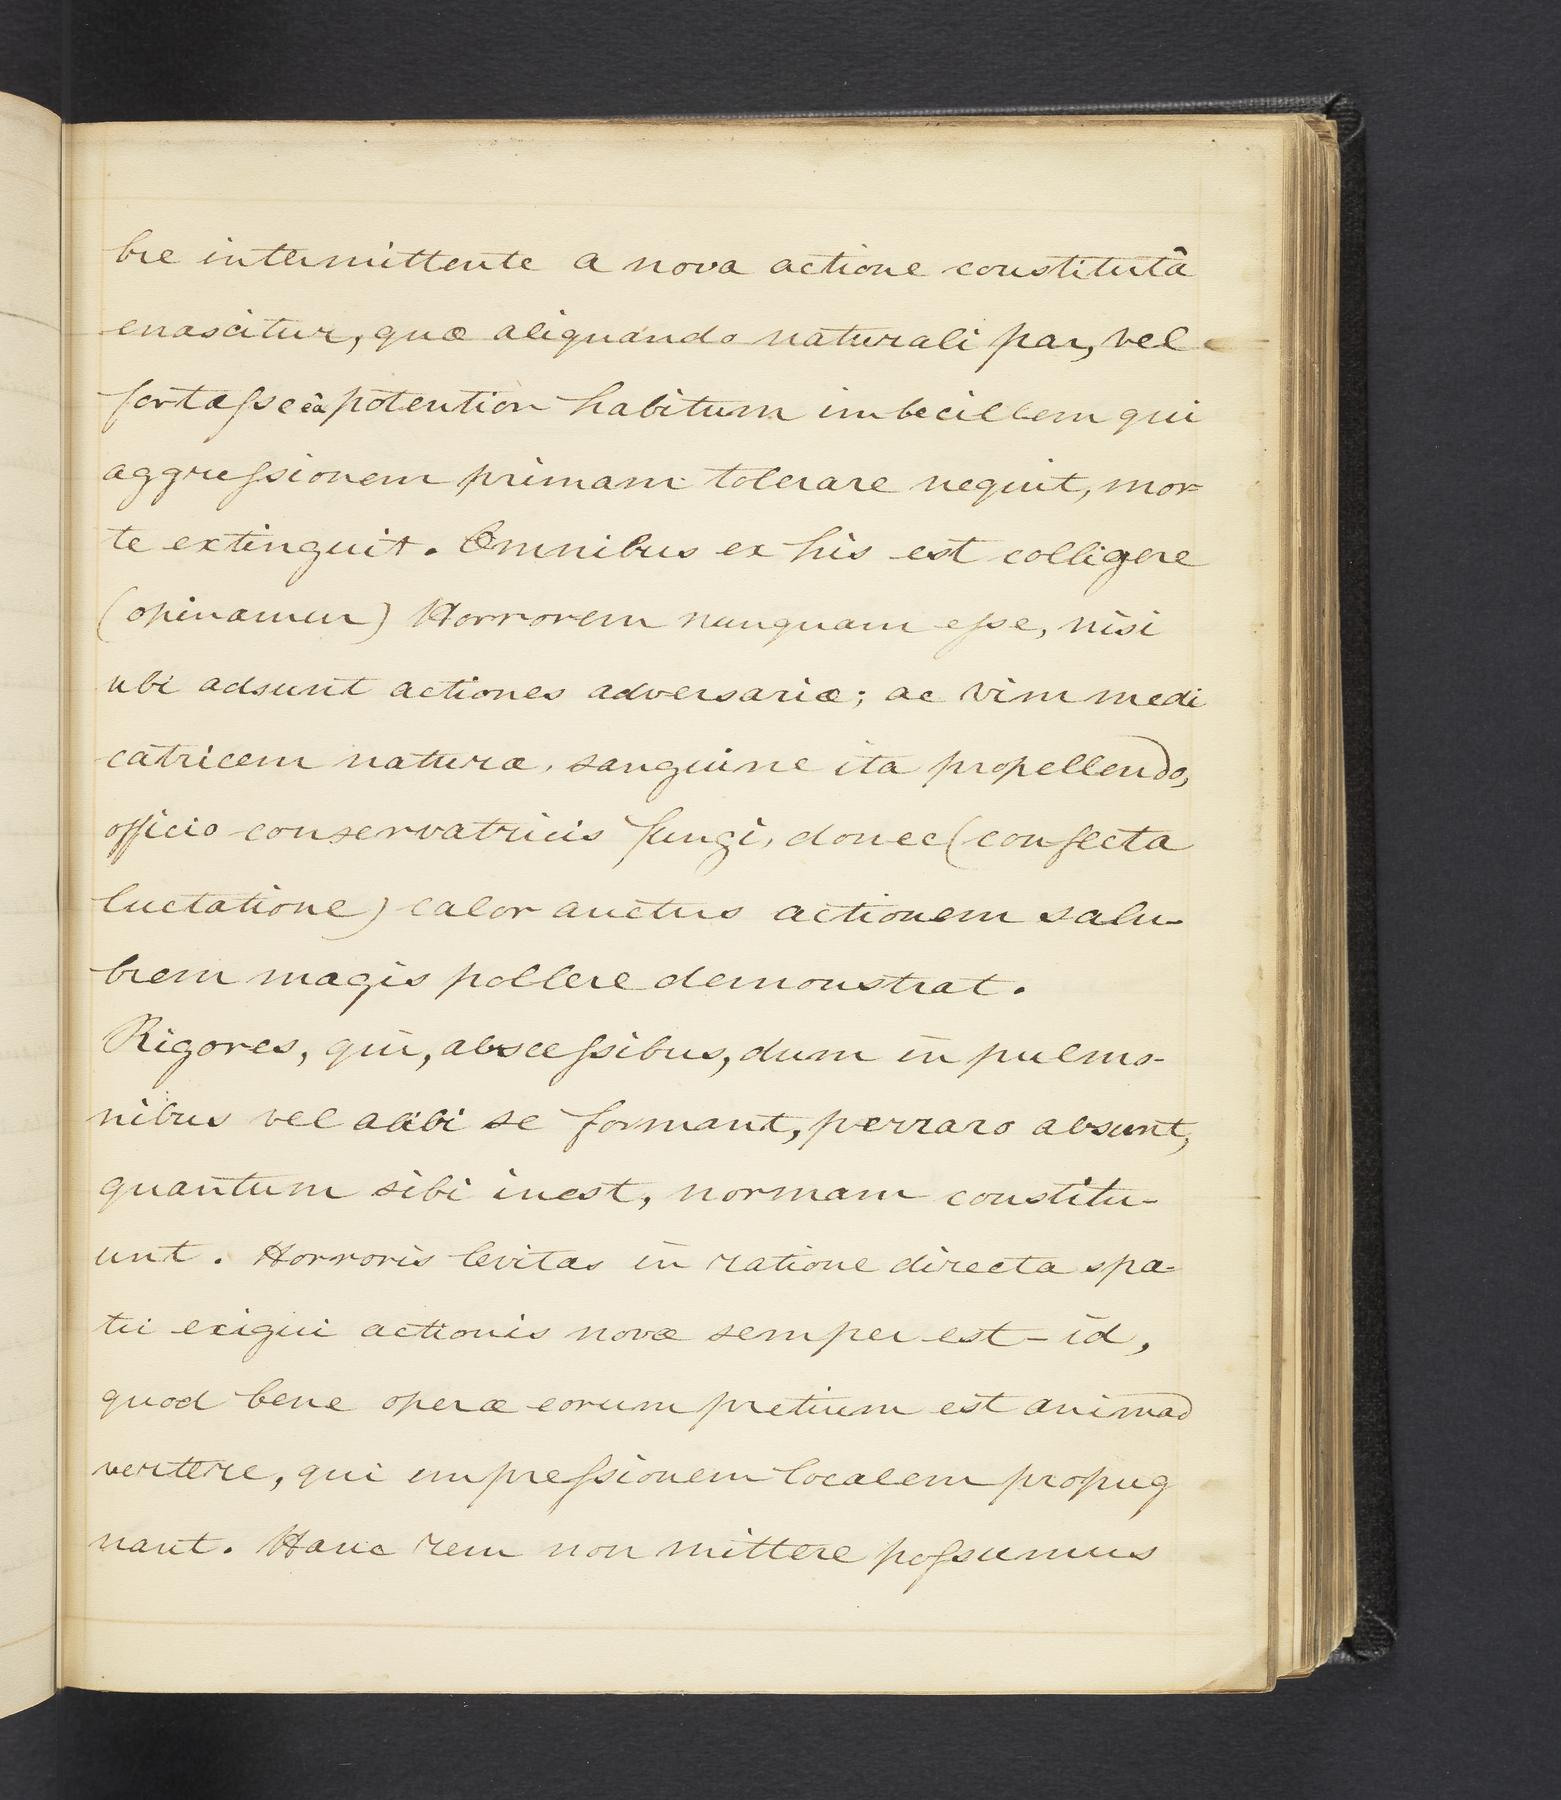 bre intermittente a nova actione constitutâ
enascitur, quæ aliquando naturali par, vel
fortaſse eâ potentior habitum imbecillem qui
aggreſsionem primam tolerare nequit, mor-
te extinguit. Omnibus ex his est colligere
(opinamur) Horrorem nunquam eſse, nisi
ubi adsunt actiones adversariæ; ac vim medi
catricem naturæ, sanguine ita propellendo,
officio conservatricis fungi, donec (confecta
luctatione) calor auctus actionem salu-
brem magis pollere demonstrat.
Rigores, qui, absceſsibus, dum in pulmo-
nibus vel alibi se formant, perraro absunt,
quantum sibi inest, normam constitu-
unt. Horroris levitas in ratione directa spa-
tii exigui actionis novæ semper est - id,
quod bene operæ eorum pretium est animad
vertere, qui impreſsionem localem propug
nant. Hanc rem non mittere poſsumus